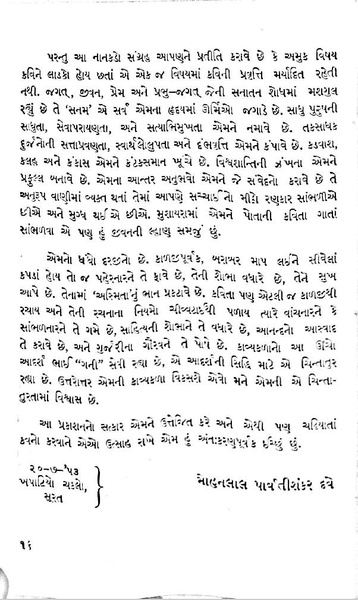 પરન્તુ આ નાનકડો સંગ્રહ આપણને પ્રતીતિ કરાવે છે કે અમુક વિષય
કવિને લાડકો હોય છતાં એ એક જ વિષયમાં કવિની પ્રવૃત્તિ મર્યાદિત રહેતી
નથી. જગત્, જીવન, પ્રેમ અને પ્રભુ-જગત્ જેની સનાતન શોધમાં મશગુલ
રહ્યું છે તે ‘સનમ’ એ સર્વ એમના હૃદયમાં ઊર્મિઓ જગાડે છે. સાધુ પુરુષની
સાધુતા, સેવાપરાયણતા, અને સત્યાભિમુખતા એમને નમાવે છે. તકસાધક
દુર્જનોની સત્તાપ્રવણતા, સ્વાર્થલોલુપતા અને દંભવૃત્તિ એમને કંપાવે છે. કડવાશ,
કલહ અને કંકાસ એમને કંટકસમાન ખૂચે છે. વિશ્વશાન્તિની ઝંખના એમને
પ્રફુલ્લ બનાવે છે. એમના આન્તર અનુભવો એમને જે સંવેદનો કરાવે છે તે
અનુરૂપ વાણીમાં વ્યક્ત થતાં તેમાં આપણે સચ્ચાઈનો મીઠો રણકાર સાંભળીએ
છીએ અને મુગ્ધ થઈએ છીએ. મુશાયરામાં એમને પોતાની કવિતા ગાતાં
સાંભળવા એ પણ હું જીવનની લ્હાણ સમજું છું.
એમનો ધંધો દરજીનો છે. કાળજીપૂર્વક, બરાબર માપ લઈને સીવેલાં
કપડાં હોય તો જ પહેરનારને તે ફાવે છે, તેની શોભા વધારે છે, તેને સુખ
આપે છે. તેનામાં ‘અસ્મિતા’નું ભાન પ્રકટાવે છે. કવિતા પણ એટલી જ કાળજીથી
રચાય અને તેની રચનાના નિયમો ચીવટાઈથી પળાય ત્યારે વાંચનારને કે
સાંભળનારને તે ગમે છે, સાહિત્યની શોભાને તે વધારે છે, આનન્દનો આસ્વાદ
તે કરાવે છે, અને ગુર્જરીના ગૌરવને તે પોષે છે. કાવ્યકળાનો આ ઊંચો
આદર્શ ભાઈ “ગની” સેવી રહ્યા છે, એ આદર્શની સિદ્ધિ માટે એ ચિન્તાતુર
રહ્યા છે. ઉત્તરોત્તર એમની કાવ્યકળા વિકસશે એવો મને એમની એ ચિન્તા-
તુરતામાં વિશ્વાસ છે.
આ પ્રકાશનનો સત્કાર એમને ઉત્તેજિત કરે અને એથી પણ ચઢિયાતાં
કવનો કરવાને એઓ ઉત્સાહ રાખે એમ હું અંતઃકરણપૂર્વક ઈચ્છું છું.
૨૦-૭-’૫૩
ખપાટિયો ચકલો,
સૂરત
મોહનલાલ પાર્વતીશંકર દવે
૧૬